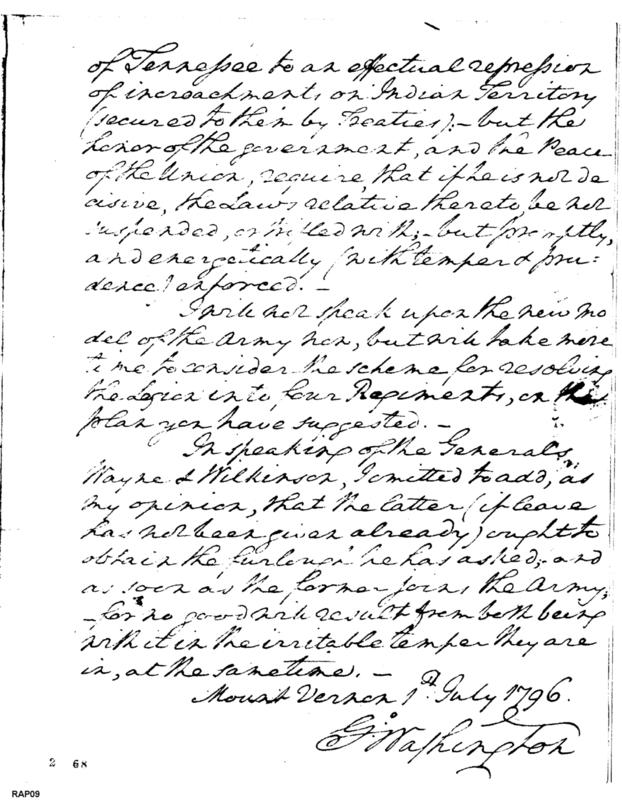 of Tennessee to an effectual repression
of incroachments on Indian Territory
(secured to them by Treaties);- but the
honor of the government, and the Peace
of the Union, require, that if he is not de
cisive, the Laws relative thereto, be not
suspended, or trifled with;- but promptly,
and energetically (with temper & pru:
dence) enforced. -
I will not speak upon the new mo
del of the Army now, but will take more
time to consider the scheme for resolving
the Legion into four Regiments, on the
plan you have suggested. -
In speaking of the Generals
Wayne & Wilkinson, I omitted to add, as
my opinion, that the latter (if leave
has not been given already) ought to
obtain the furlough he has asked; and
as soon as the former joins the Army;
- for no good will result from both being
with it in the irritable temper they are
in, at the same time. -
Mount Vernon 1st July 1796.
Go Washington
2 68
RAP09